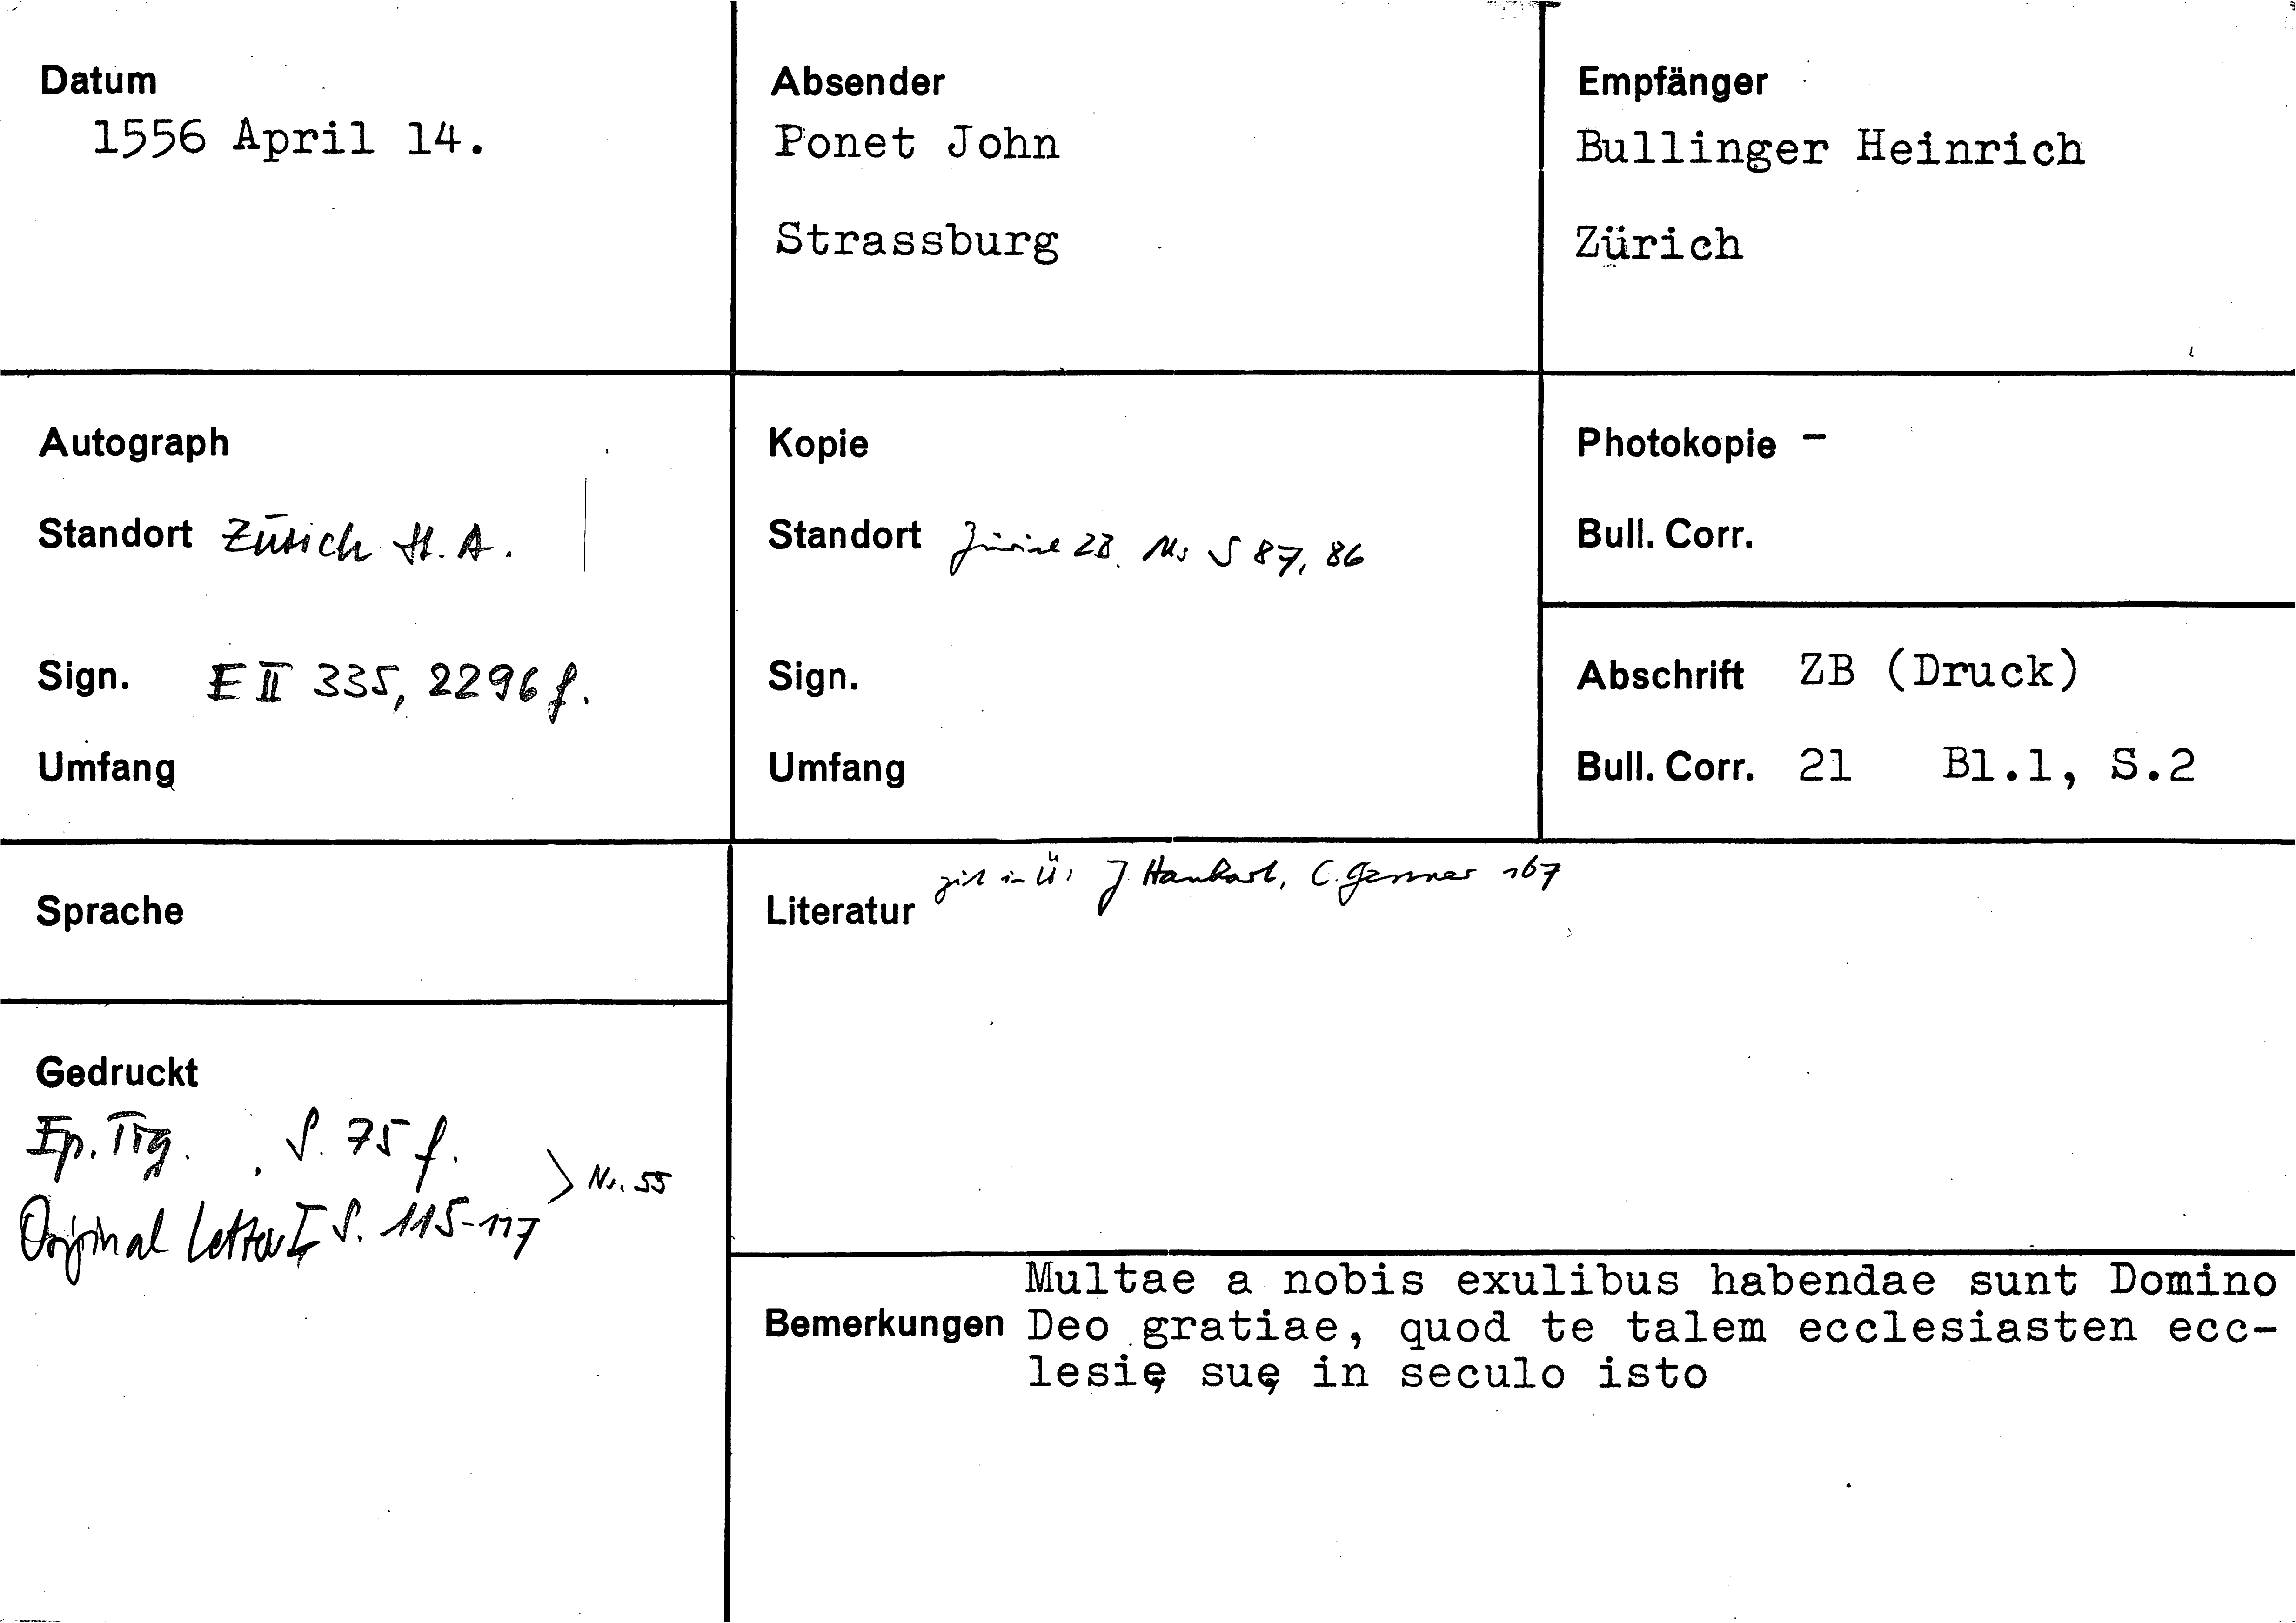 Datum
1556 April 14.
Absender
Ponet John
Strassburg
Empfänger
Bullinger Heinrich
Zürich
Autograph
Standort Zürich St. A.
Sign. E II 335, 2296 f.
Umfang
Kopie
Standort Zürich ZB. Ms S 87, 86
Sign.
Umfang
Photokopie -
Bull. Corr.
Abschrift ZB (Druck)
Bull. Corr. 21 Bl.1, S.2
Sprache
Literatur zit in Ü: J
167
Gedruckt
Ep. Tig. S. 75 f.
Original Letters I S. 115-117
> Nr. 55
Bemerkungen
Multae a nobis exulibus habendae sunt Domino
Deo gratiae, quod te talem ecclesiasten ecc-
lesię suę in seculo isto